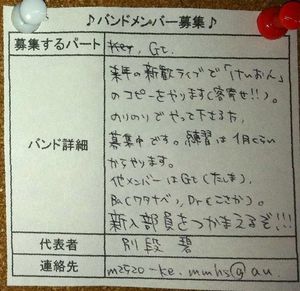 ♪バンドメンバー募集♪
募集するパート
Key, Gt.
バンド詳細
来年の新歓ライブで「けいおん」
のコピーをやります(客寄せ!!)。
のりのりでやって下さる方、
募集中です。練習は1月くらい
からやります。
他メンバーはGt(たじま)、
Ba(ワタナベ)、Dr(こさか)。
新入部員をつかまえるぞ!!!
代表者
別段 碧
連絡先
m2520-ke.mmhs@au